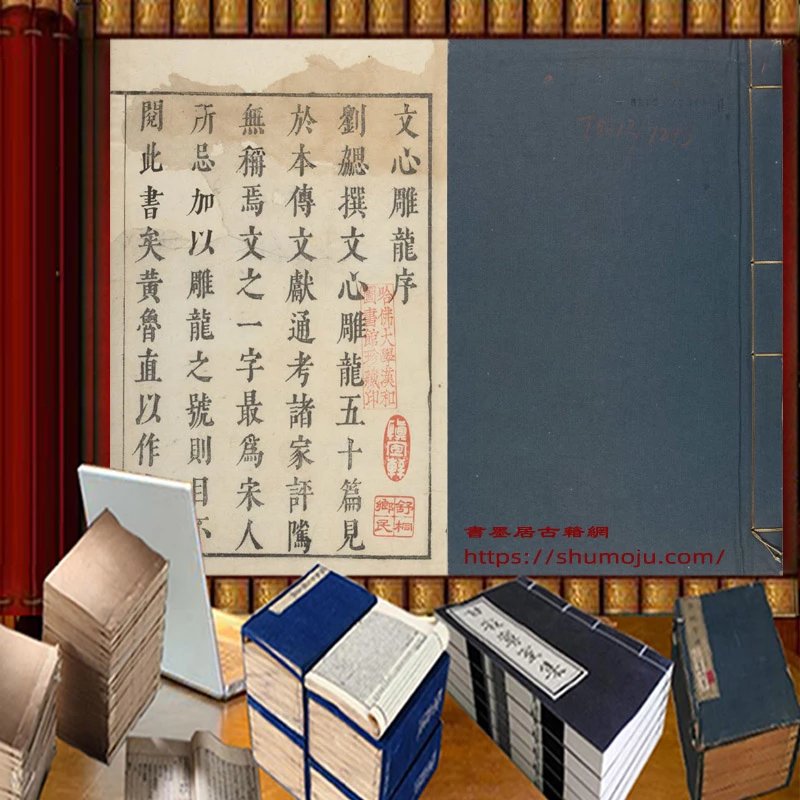 文心雕龍序
劉勰撰文心雕龍五十篇見
於本傳文獻通考諸家評隲
無稱焉文之一字最爲宋人
所忌加以雕龍之號則目不
閱此書矣黄魯直以作
哈佛大學漢和
圖書館珍藏印
慎宜軒
舒桐
鄉民
書墨居古籍網
https://shumoju.com/